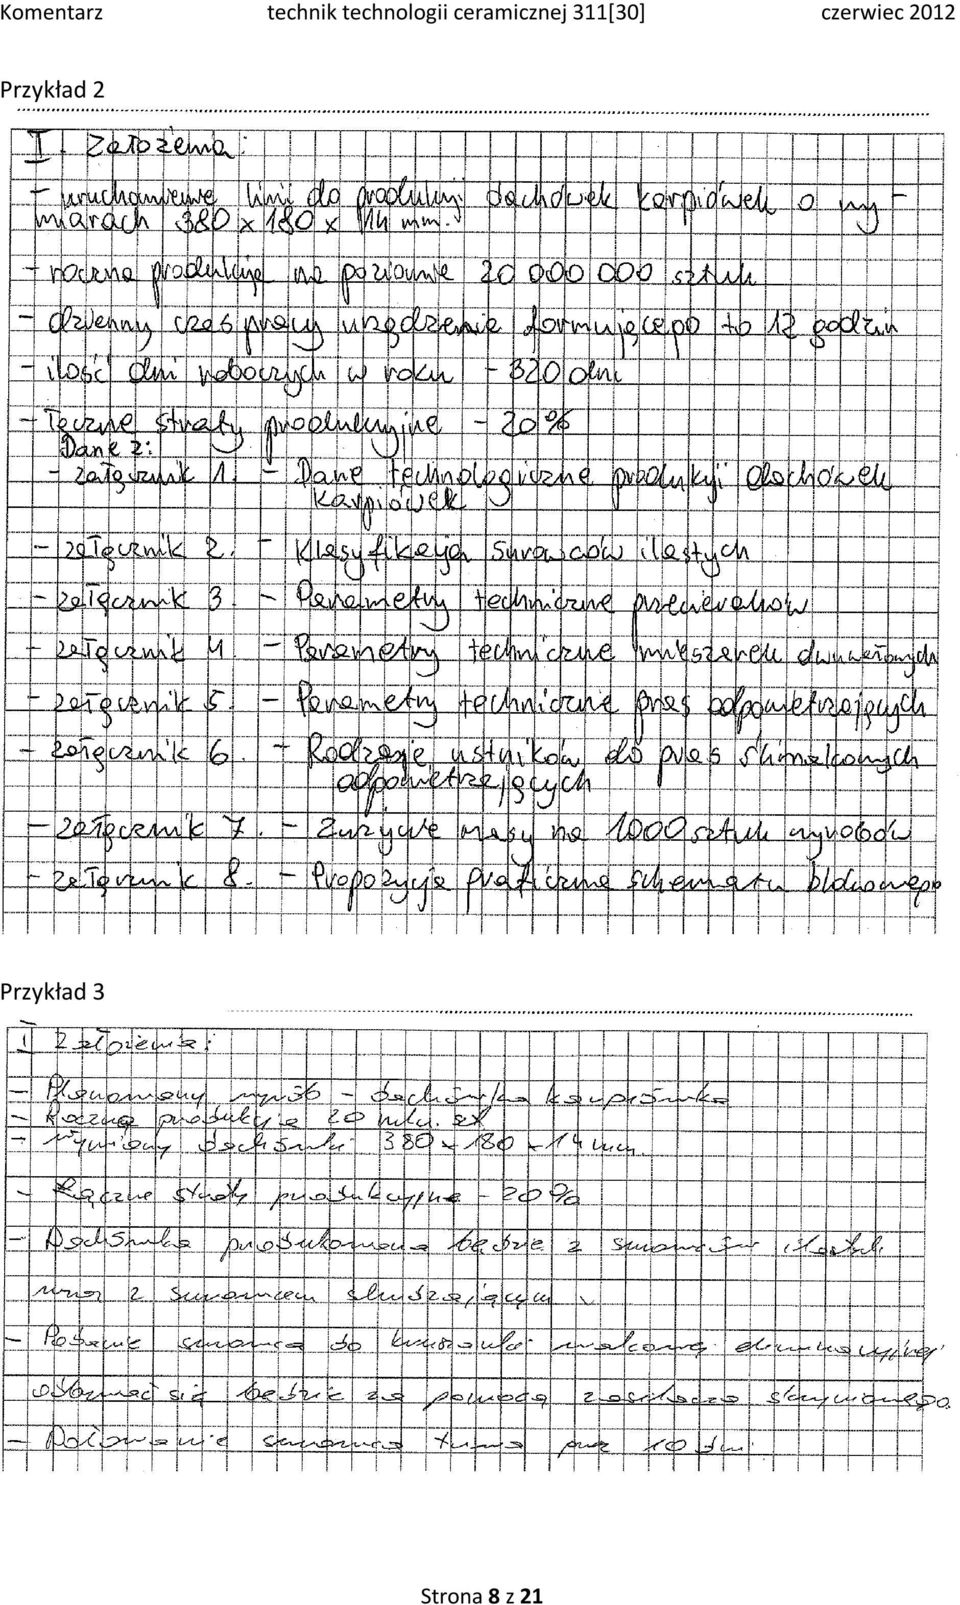 Komentarz technik technologii ceramicznej 311[30] czerwiec 2012
Przykład 2
I. Założenia:
- uruchomienie linii do produkcji dachówek karpiówek o wy-
miarach 380 x 180 x 14 mm.
- roczna produkcja na poziomie 20 000 000 sztuk
- dzienny czas pracy urządzenia formującego to 12 godzin
- ilość dni roboczych w roku - 320 dni
- Łączne straty produkcyjne - 20%
Dane z:
- załącznik 1. - Dane technologiczne produkcji dachówek
karpiówek
- załącznik 2. - Klasyfikacja surowców ilastych
- załącznik 3. - Parametry techniczne przecieraków
- załącznik 4. - Parametry techniczne mieszarek dwuwałowych
- załącznik 5. - Parametry techniczne pras odpowietrzających
- załącznik 6. - Rodzaje ustników do pras ślimakowych
odpowietrzających
- załącznik 7. - Zużycie masy na 1000 sztuk wyrobów
- załącznik 8. - Propozycja graficzna schematu blokowego
Przykład 3
I Założenia:
- Planowany wyrób - dachówka karpiówka
- Roczna produkcja 20 mln. szt
- Wymiary dachówki 380 x 180 x 14 mm.
- Łączne straty produkcyjne - 20%
- Dachówka produkowana będzie z surowców ilastych
wraz z surowcem schudzającym
- Podanie surowca do kruszarki walcowej eliminacyjnej
odbywać się będzie za pomocą zasilacza skrzyniowego.
- Dołowanie surowca trwa przez 10 dni
Strona 8 z 21